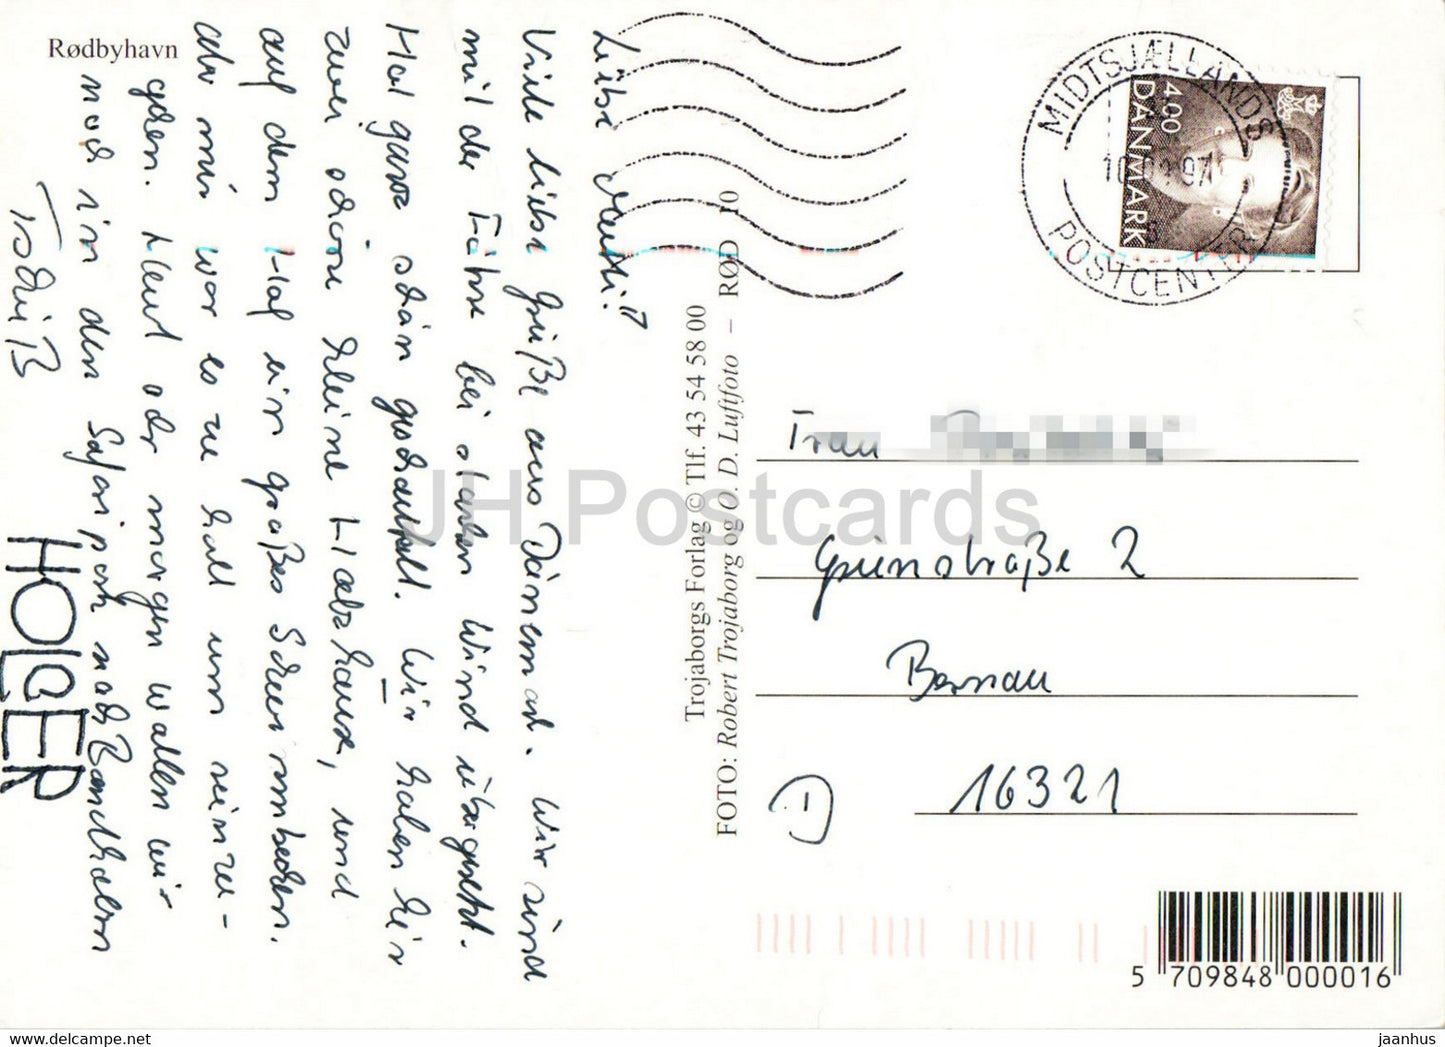 Rødbyhavn
Liebe
Viele liebe Grüße aus Dänemark. Wir sind
mit der Fähre bei starken Wind übergesetzt.
Hat ganz schön geschaukelt. Wir haben hier
zwei schöne kleine Holzhäuser, und
auf dem Hof ein großes Schwimmbecken.
aber mir war es zu kalt um reinzu-
gehen. Heut oder morgen wollen wir
noch in den Safaripark nach Bandholm
Tschüß
HOLGER
Trojaborgs Forlag © Tlf. 43 54 58 00
FOTO: Robert Trojaborg og O. D. Luftfoto – RØD 10
MIDTSJÆLLANDS
POSTCENTER
4.00
DANMARK
Frau
Grünstraße 2
Bernau
D
16321
5 709848 000016
JH Postcards
www.delcampe.net
jaanhus